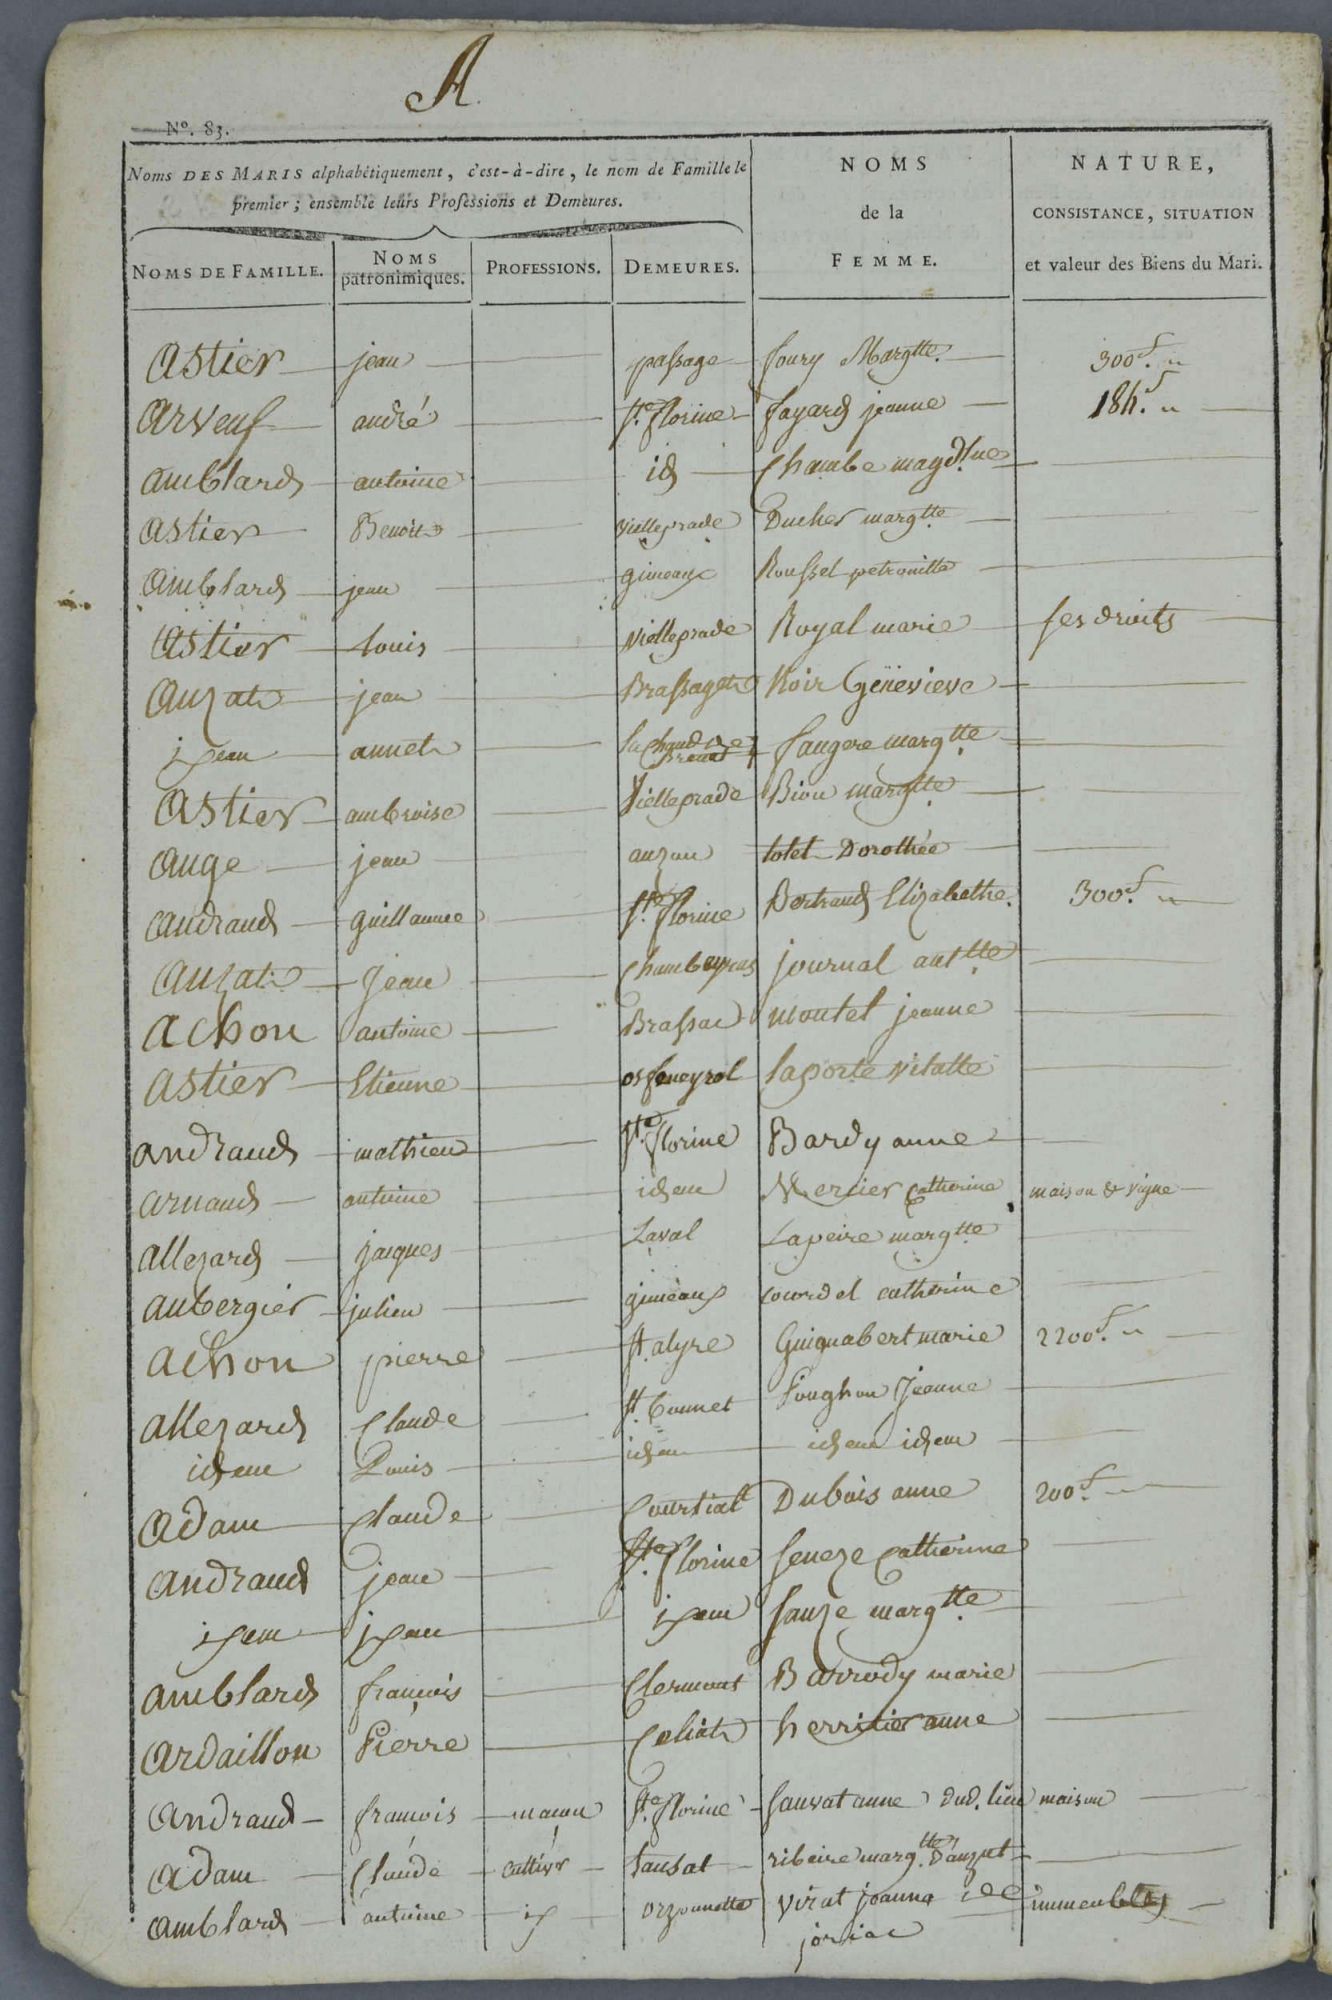 A.
N°. 83.
Noms DES MARIS alphabétiquement, c'est-à-dire, le nom de Famille le
premier; ensemble leurs Professions et Demeures.
NOMS DE FAMILLE.
NOMS
patronimiques.
PROFESSIONS.
DEMEURES.
NOMS
de la
FEMME.
NATURE,
CONSISTANCE, SITUATION
et valeur des Biens du Mari.
Astier jean passage foury Margtte. 300f. "
Arveuf andré Ste. florine fayard jeanne 184f. "
amblard antoine id Chambe magdlne
astier Benoit vielleprade Ducher margtte
amblard jean gimeaux Roussel petronille
Astier Louis vielleprade Royal marie ses droits
Auzat jean Brassaget Noir Genevieve
idem annet faugere margtte
Astier ambroise Vielleprade Biou margtte
Auge jean auzon totet Dorothée
andraud guillaume Ste. florine Bertrand Elizabethe. 300f. "
auzat Jean Chambeyrac journal antte
Achon antoine Brassac moutet jeanne
astier Etienne laporte vitalle
andraud mathieu Ste. florine Bardy anne
arnaud antoine idem Mercier Catherine maison & vigne
allezard jacques Laval Lapeire margtte
aubergier julien gimeaux courdel catherine
achon pierre St. alyre Guignabert marie 2200f. "
allezard Claude St. Bonnet Foughou Jeanne
idem Louis idem idem idem
Adam Claude Courtialt Dubois anne 200f.
andraud jean Ste. florine seneze Catherine
idem idem idem sauze margtte
amblard françois Clermont Barrody marie
ardaillon Pierre Celiat herritier anne
andraud françois maçon Ste. florine sauvat anne dud. lieu maison
adam Claude Cultivr tansat ribeire margtte. d'auzat
amblard antoine id orzonnette virat jeanne de immeubles
joriac